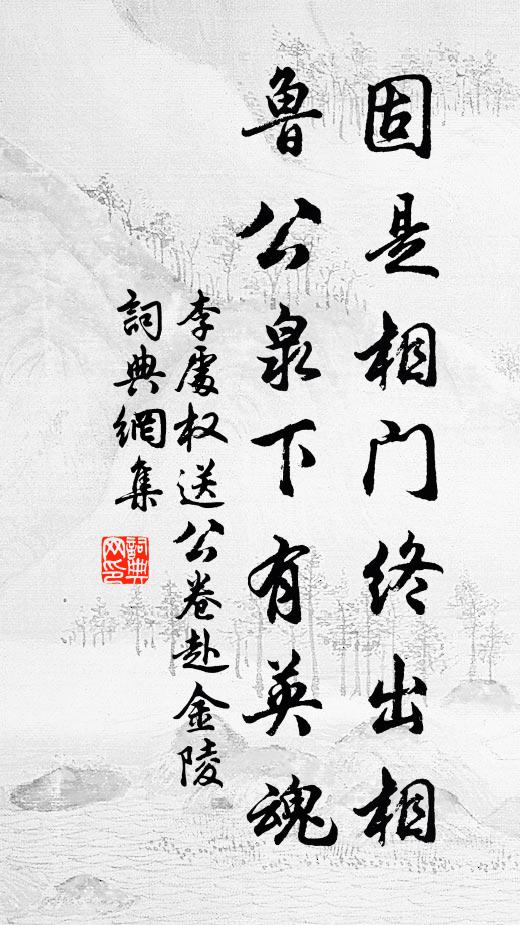 固是相门终出相
鲁公泉下有英魂
李處权送公卷赴金陵
詞典網集
詞典
网印